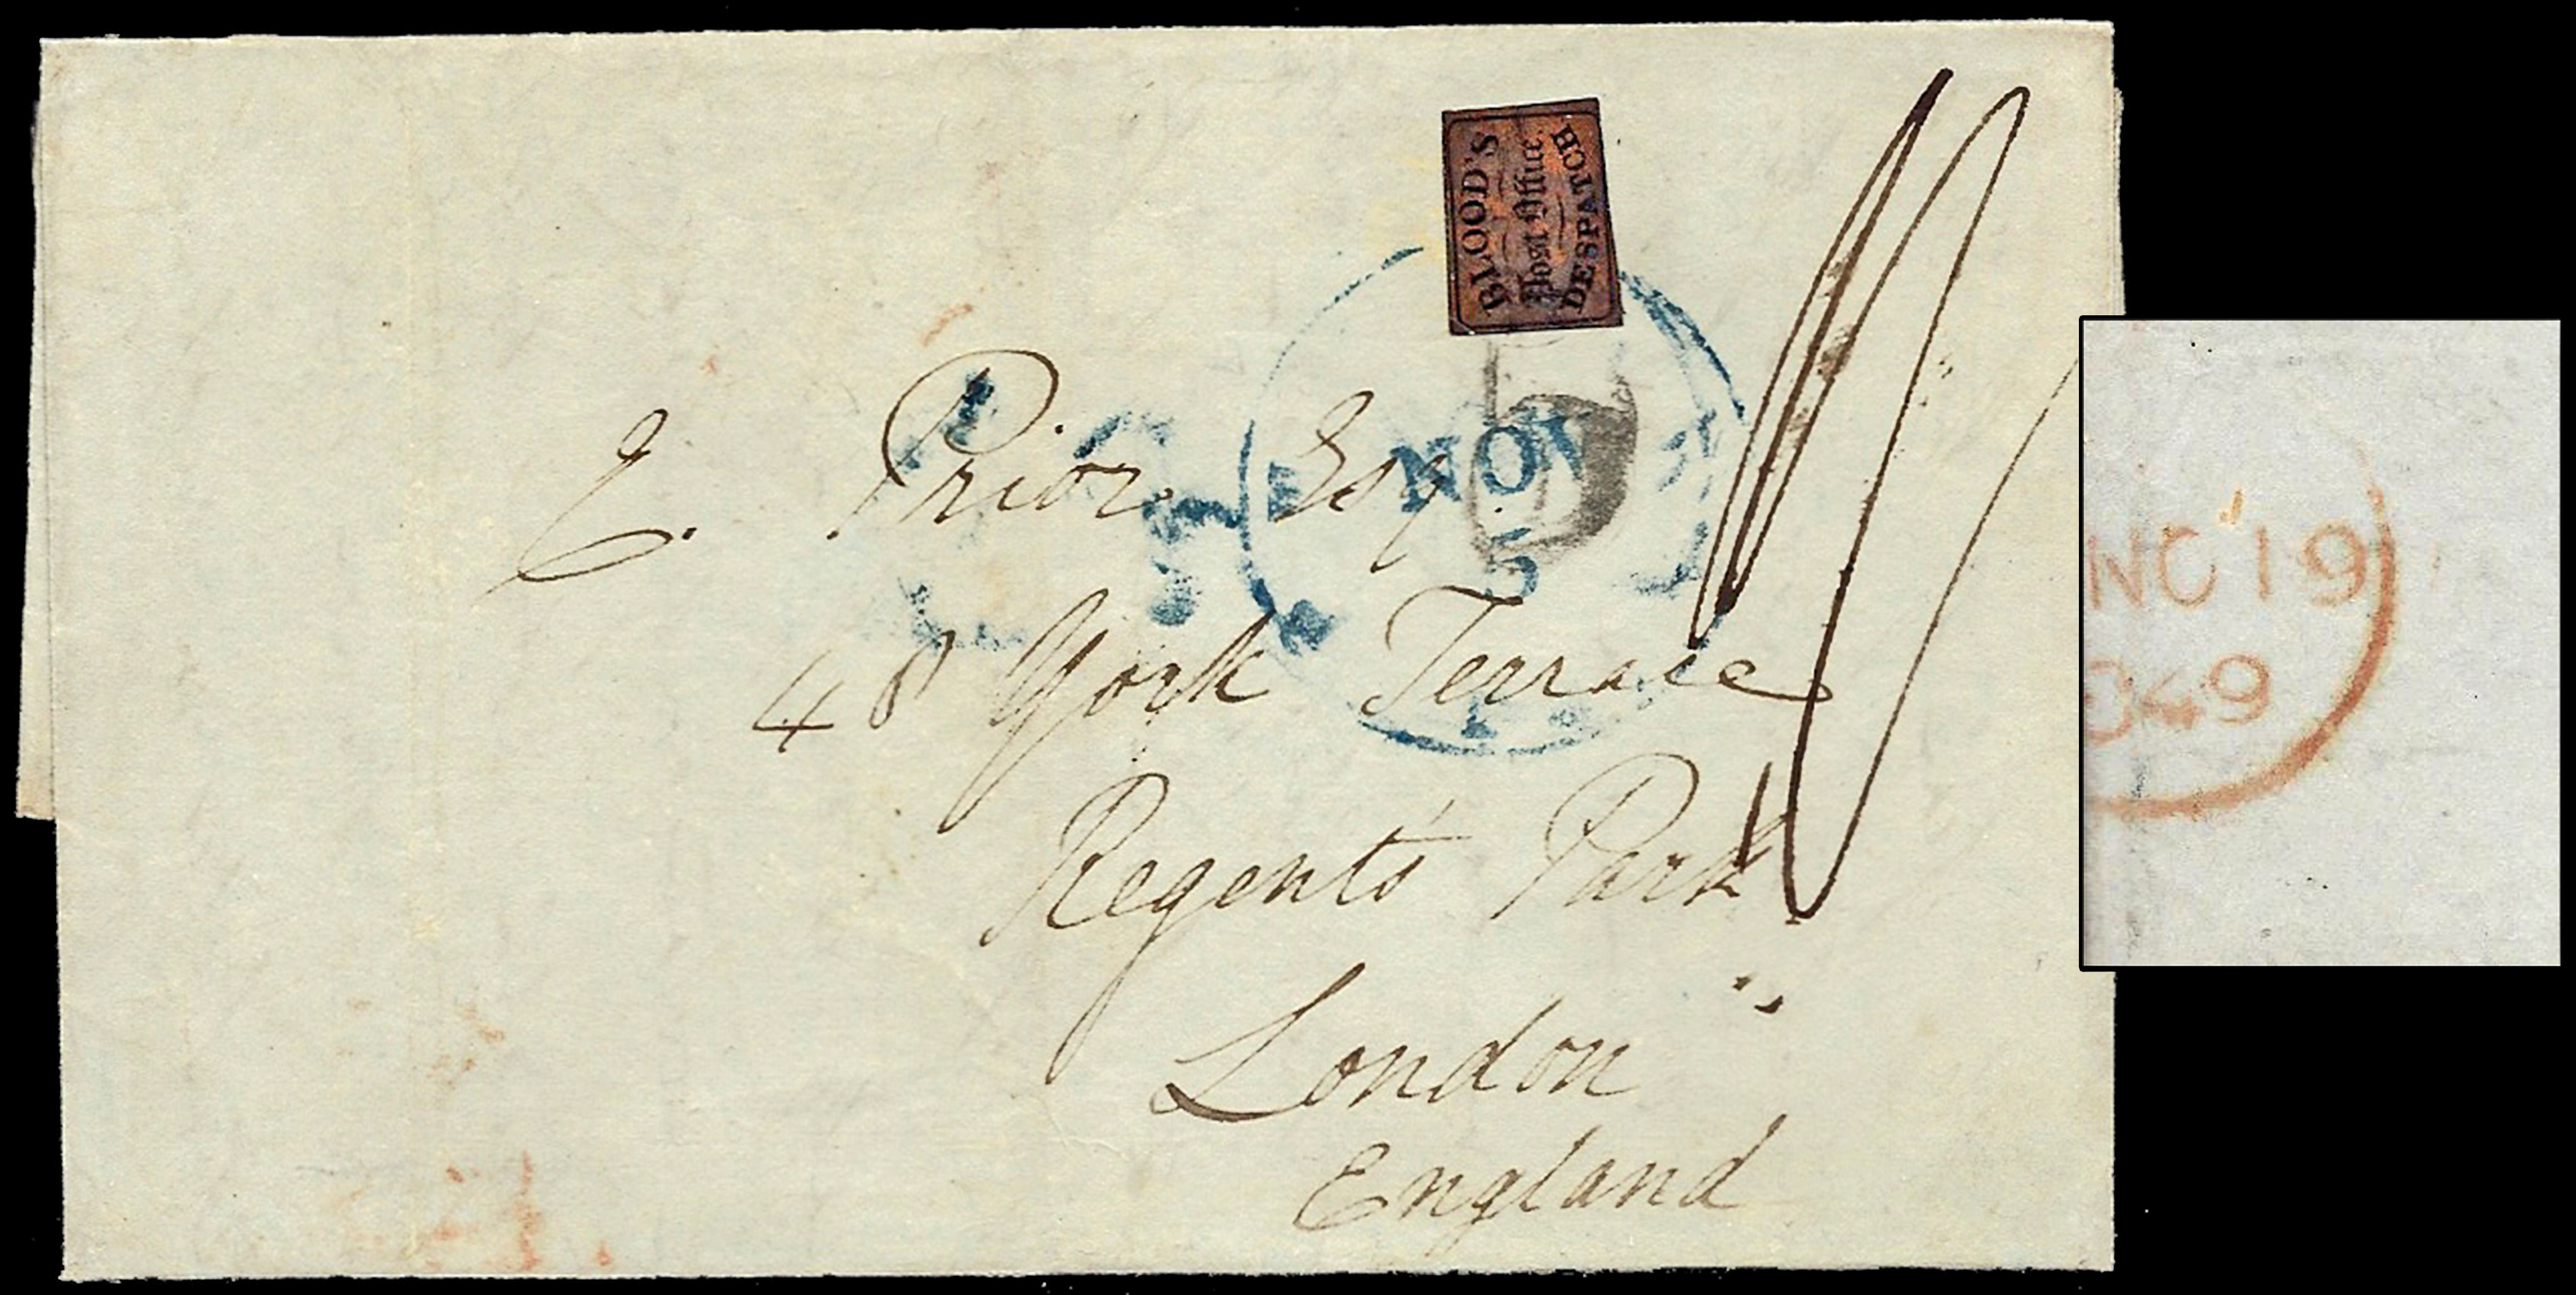 BLOOD'S
Post Office
DESPATCH
NOV
5
E. Prior Esq.
48 York Terrace
Regent's Park
London
England
NO 19
1849